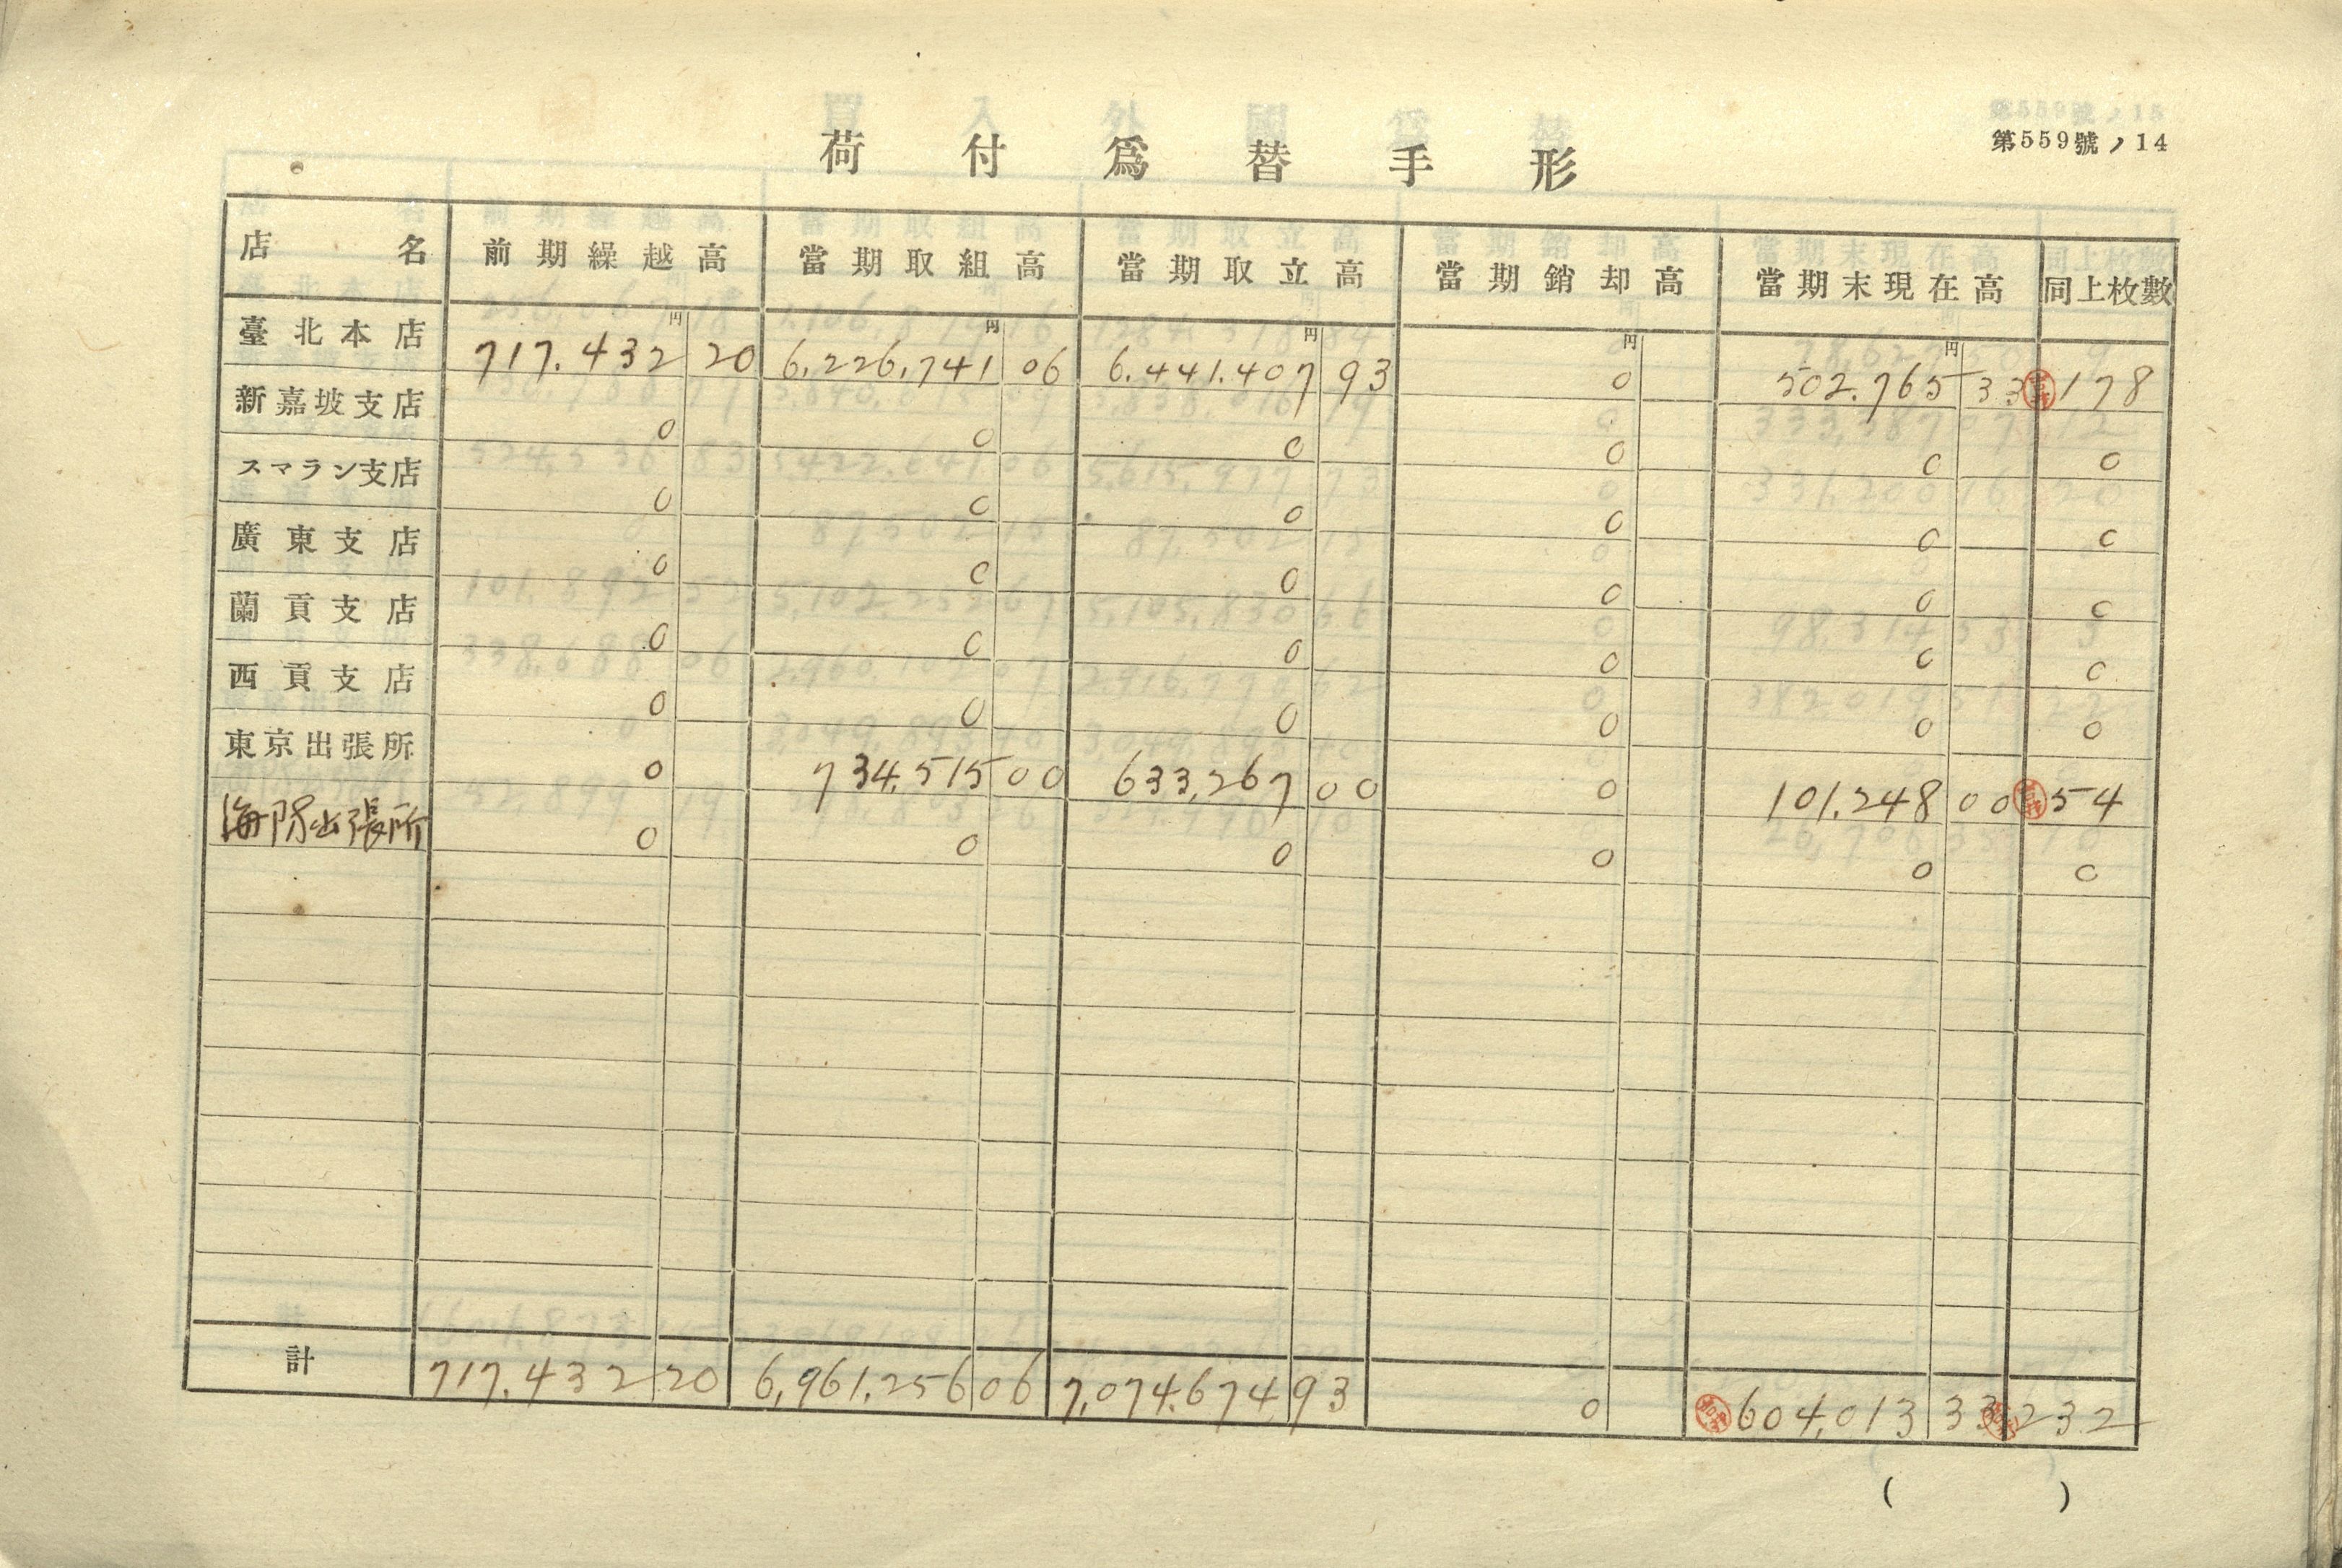 第559號ノ14
荷付爲替手形
店名 前期繰越高 當期取組高 當期取立高 當期銷却高 當期末現在高 同上枚數
円 円 円 円 円
臺北本店 717.432 20 6,226,741 06 6.441.407 93 0 502.765 33 178
新嘉坡支店 0 0 0 0 0 0
スマラン支店 0 0 0 0 0 0
廣東支店 0 0 0 0 0 0
蘭貢支店 0 0 0 0 0 0
西貢支店 0 0 0 0 0 0
東京出張所 0 734,515 00 633,267 00 0 101.248 00 54
海防出張所 0 0 0 0 0 0
計 717.432 20 6,961.256 06 7,074.674 93 0 604,013 33 232
( )